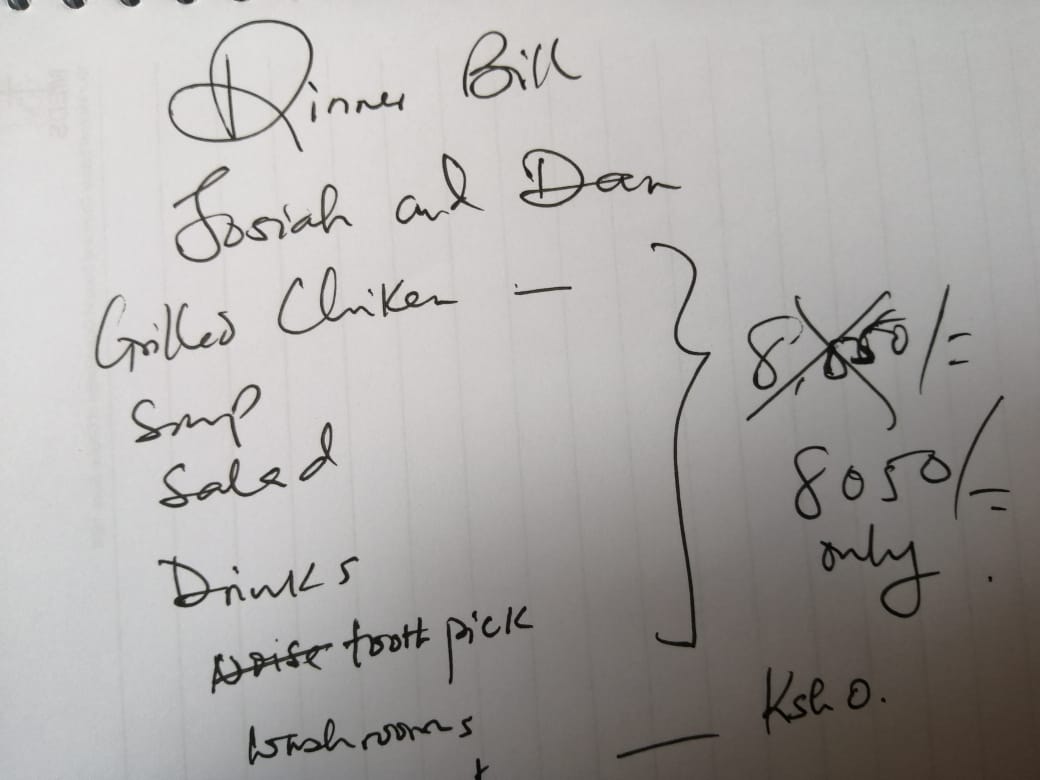 Dinner Bill
Josiah and Dan
Grilled Chiken —
Soup
Salad
Drinks
Noise tooth pick
8,850/=
8050/=
only.
washrooms — Ksh 0.